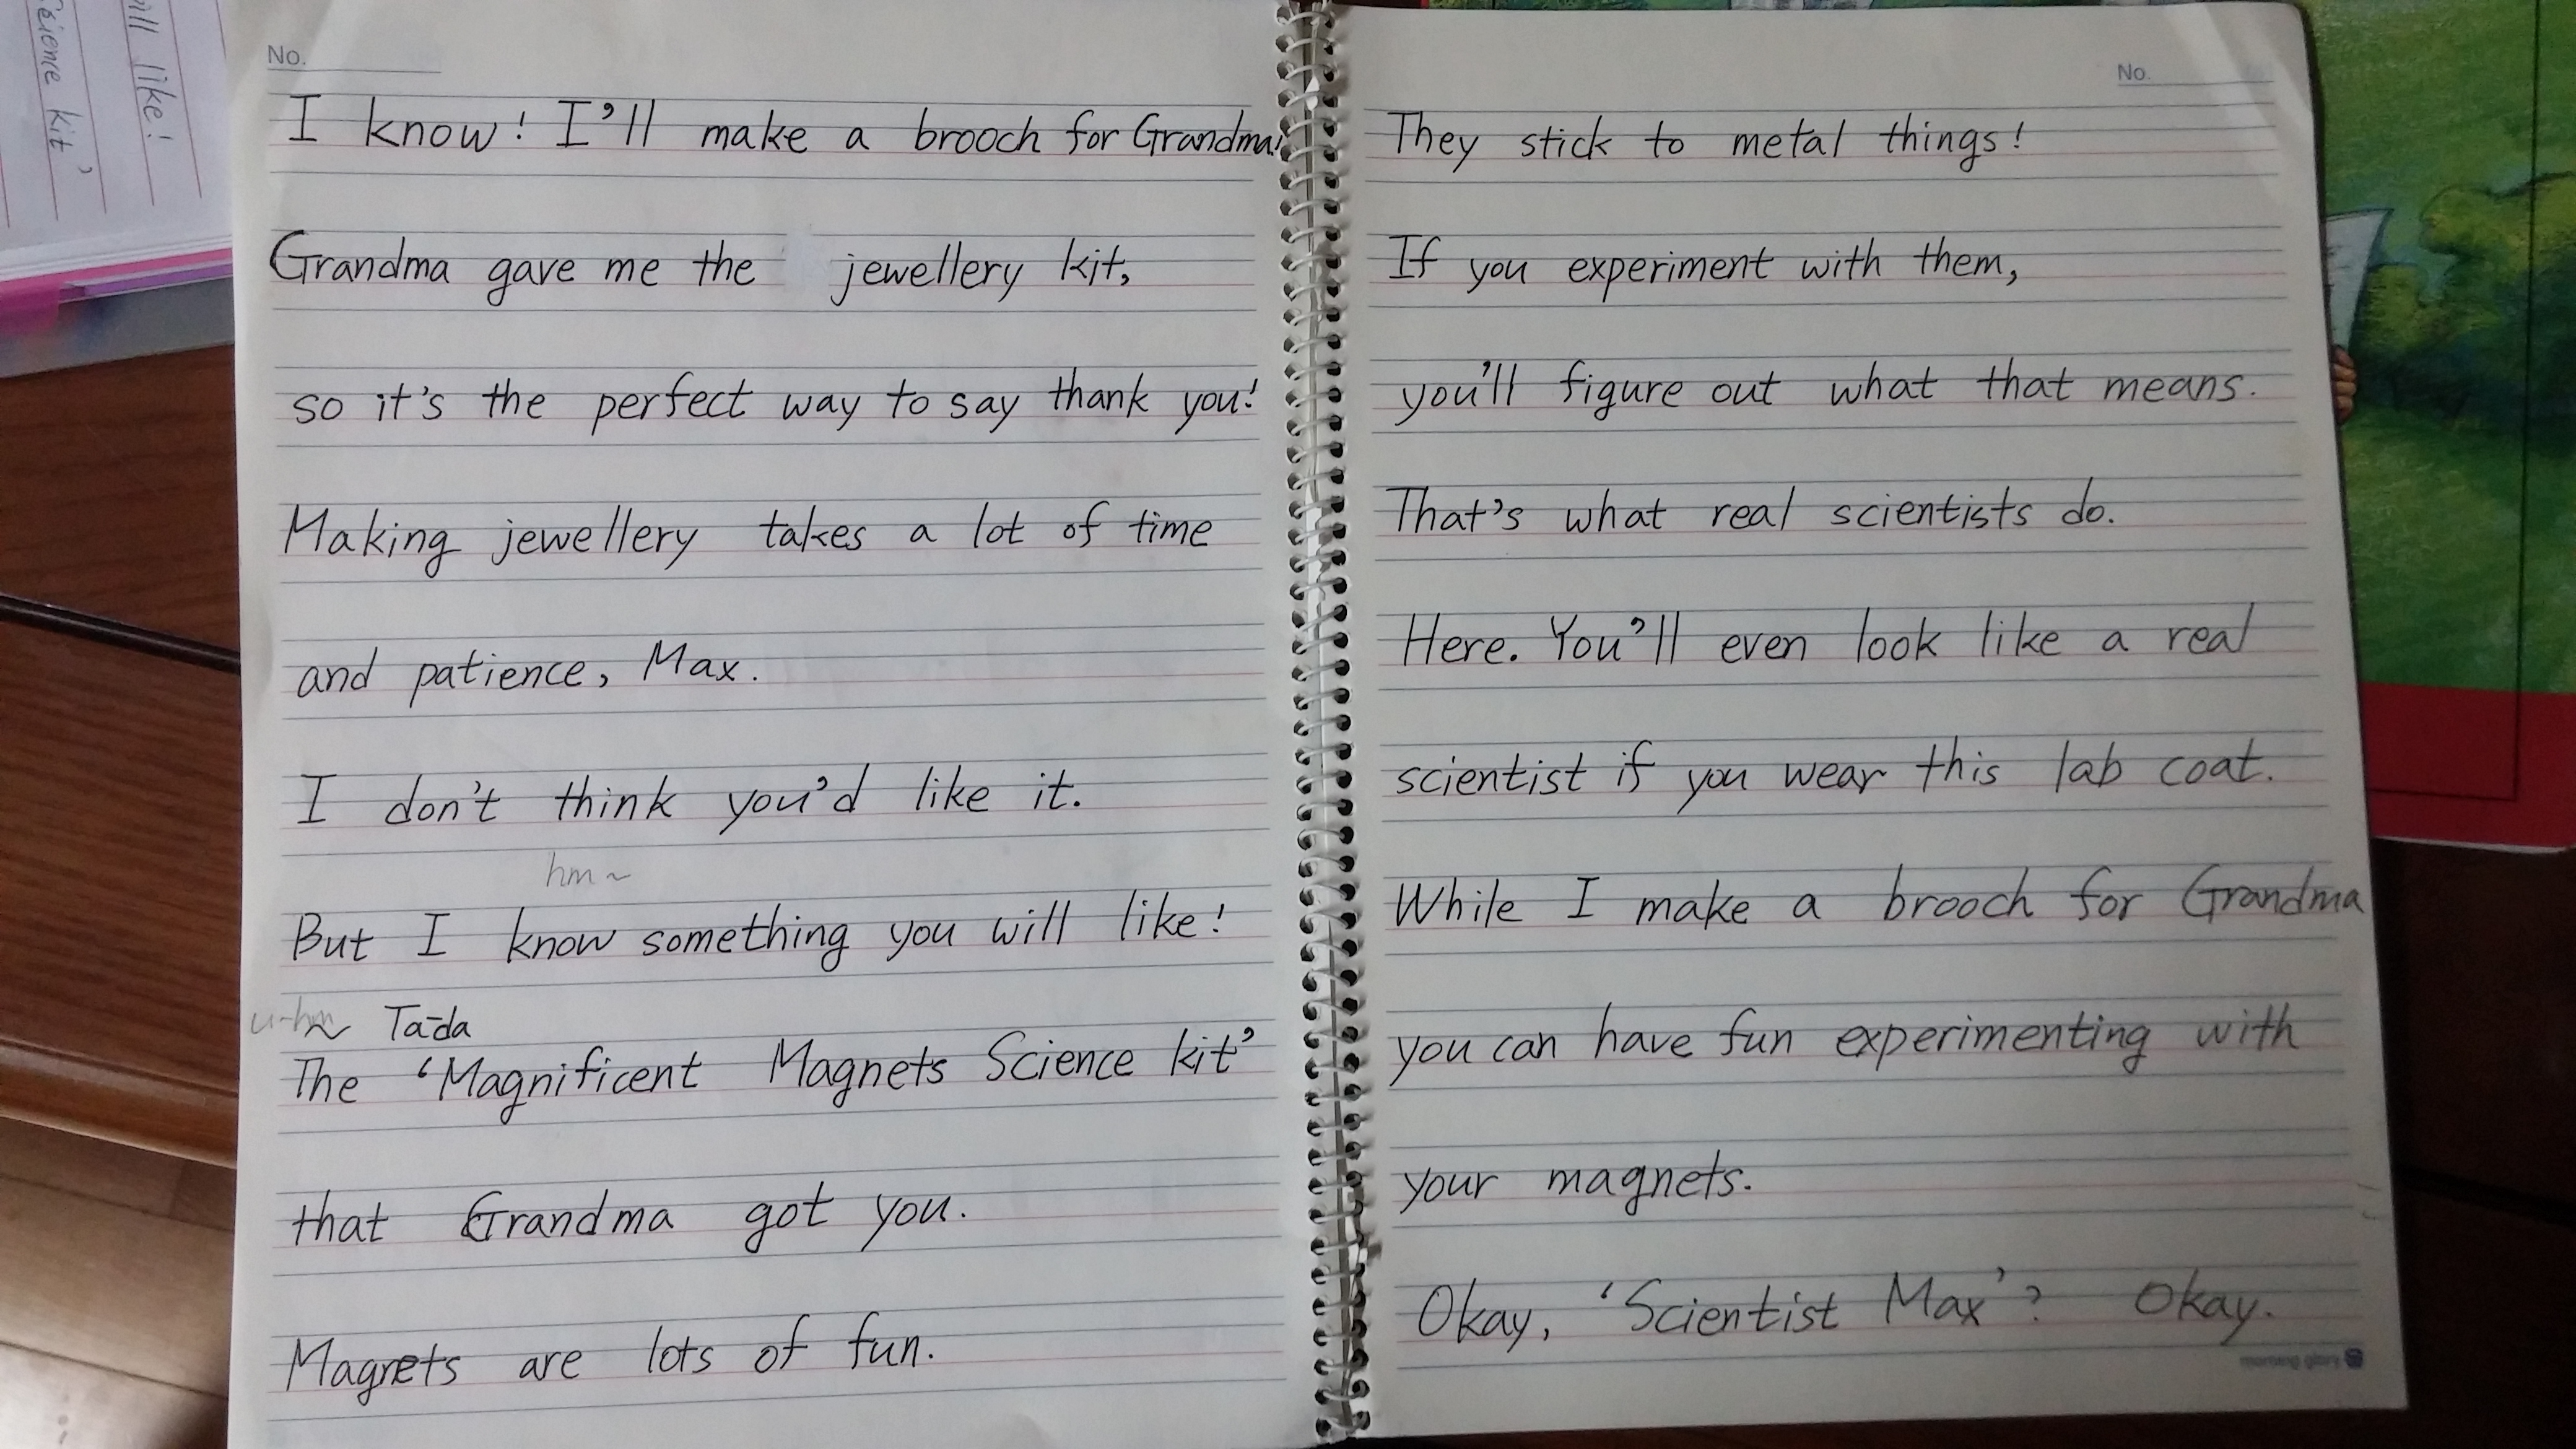 ill like!
Science kit'
No.
I know! I'll make a brooch for Grandma!
Grandma gave me the jewellery kit,
so it's the perfect way to say thank you!
Making jewellery takes a lot of time
and patience, Max.
I don't think you'd like it.
hm~
But I know something you will like!
u-hm~ Ta-da
The 'Magnificent Magnets Science kit'
that Grandma got you.
Magnets are lots of fun.
No.
They stick to metal things!
If you experiment with them,
you'll figure out what that means.
That's what real scientists do.
Here. You'll even look like a real
scientist if you wear this lab coat.
While I make a brooch for Grandma
you can have fun experimenting with
your magnets.
Okay, 'Scientist Max'? Okay.
morning glory